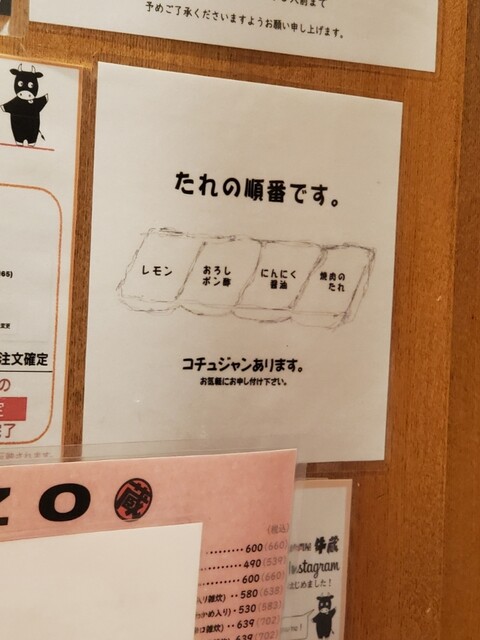 予めご了承くださいますようお願い申し上げます。
たれの順番です。
レモン
おろし
ポン酢
にんにく
醤油
焼肉の
たれ
コチュジャンあります。
お気軽にお申し付け下さい。
注文確定
の
了
ZO
蔵
(税込)
600(660)
490(539)
600(660)
入り雑炊)‥580(638)
わかめ入り)・530(583)
雑炊)‥639(702)
639(702)
牛蔵
Instagram
はじめました!